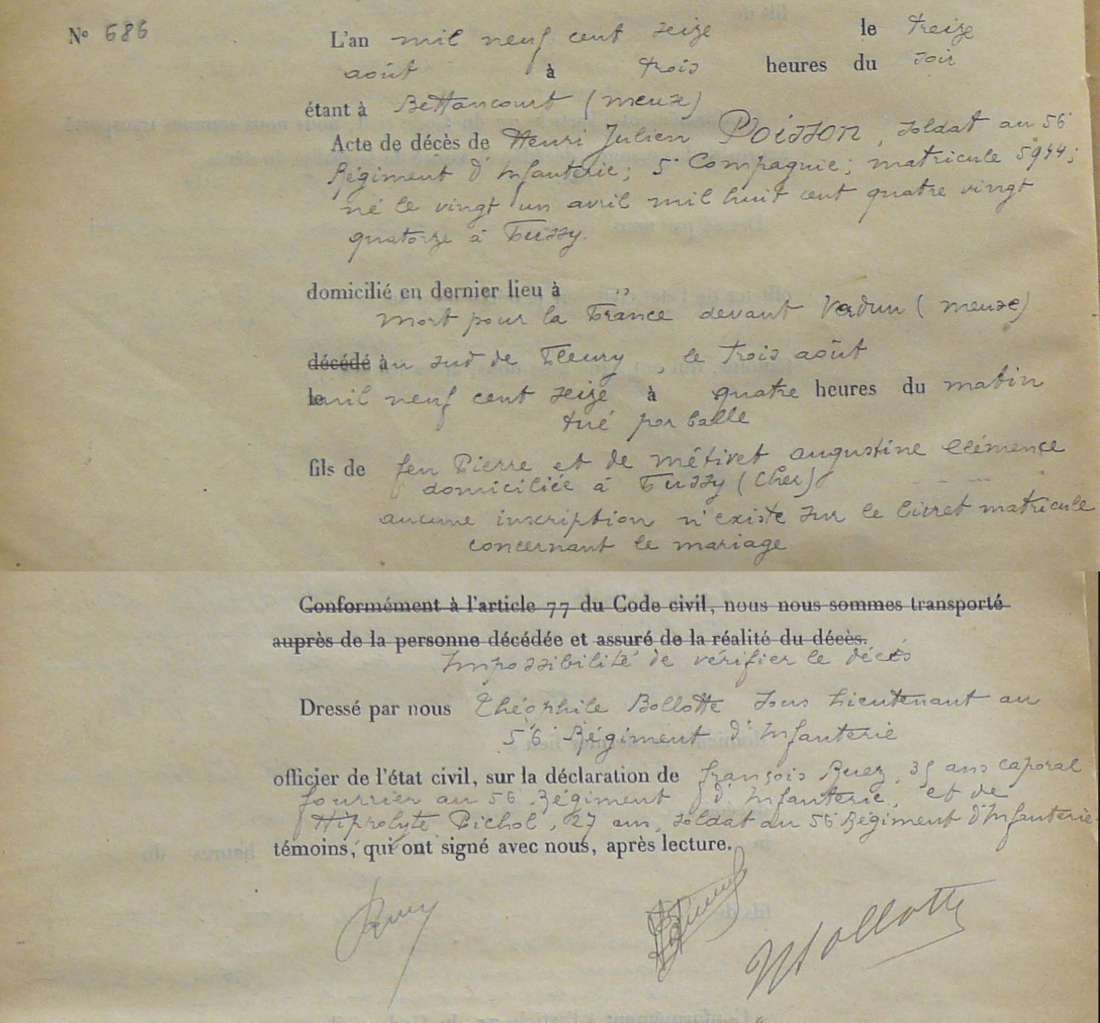 N° 686
L'an mil neuf cent seize le treize
août à trois heures du soir
étant à Bettancourt (meuse)
Acte de décès de Henri Julien Poisson, soldat au 56
Régiment d'Infanterie; 5e Compagnie; matricule 5944;
né le vingt un avril mil huit cent quatre vingt
quatorze à Fussy.
domicilié en dernier lieu à "
Mort pour la France devant Verdun (meuse)
décédé au sud de Fleury, le trois août
le mil neuf cent seize à quatre heures du matin
tué par balle
fils de feu Pierre et de Métivet augustine Clémence
domiciliée à Fussy (Cher)
aucune inscription n'existe sur le livret matricule
concernant le mariage
Conformément à l'article 77 du Code civil, nous nous sommes transporté
auprès de la personne décédée et assuré de la réalité du décès.
Impossibilité de vérifier le décès
Dressé par nous Théophile Bollotte sous lieutenant au
56 Régiment d'Infanterie
officier de l'état civil, sur la déclaration de françois Ruez, 35 ans caporal
fourrier au 56 Régiment d'Infanterie, et de
Hippolyte Pichol, 27 ans, soldat au 56 Régiment d'Infanterie
témoins, qui ont signé avec nous, après lecture.
Bollotte